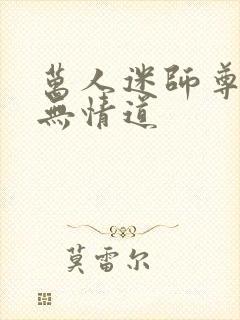 萬人迷師尊
無情道
莫雷尔